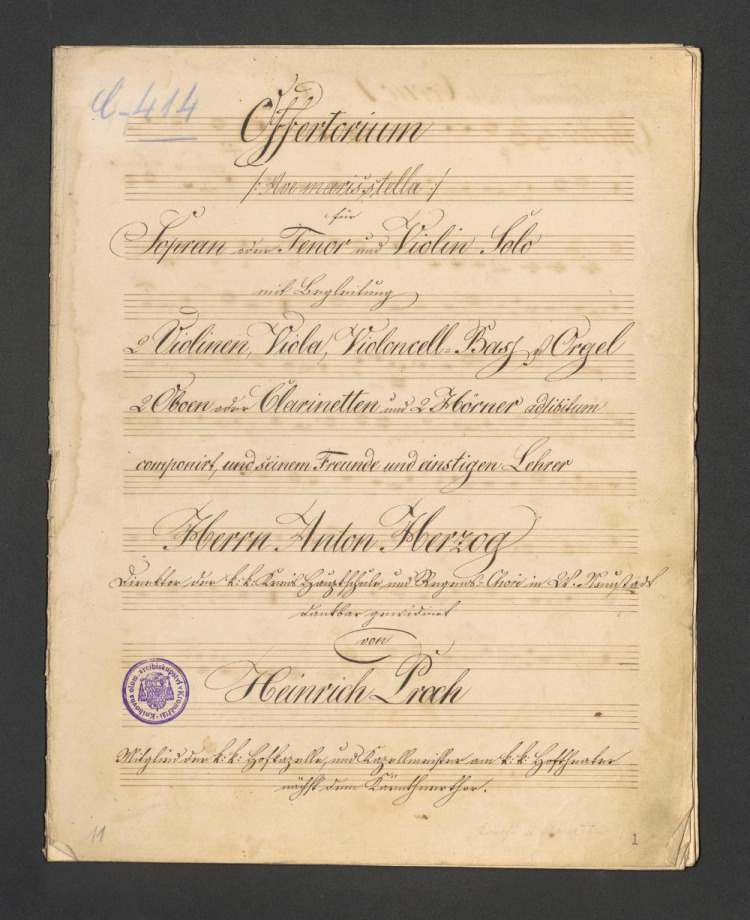 C-414
Offertorium
/: Ave maris stella :/
für
Sopran oder Tenor und Violin Solo
mit Begleitung
2 Violinen, Viola, Violoncell=Bass & Orgel
2 Oboen oder Clarinetten und 2 Hörner adlibitum
componirt, und seinem Freunde und einstigen Lehrer
Herrn Anton Herzog
Direktor der k: k: Kreis Hauptschule, und Regens=Chori in W. Neustadt
dankbar gewidmet
von
Heinrich Proch
Knihovna olom. arcibiskupství v Kroměříži
Mitglied der k: k: Hofkapelle, und Kapellmeister am k: k: Hoftheater
nächst dem Kärnthnerthor.
11
1